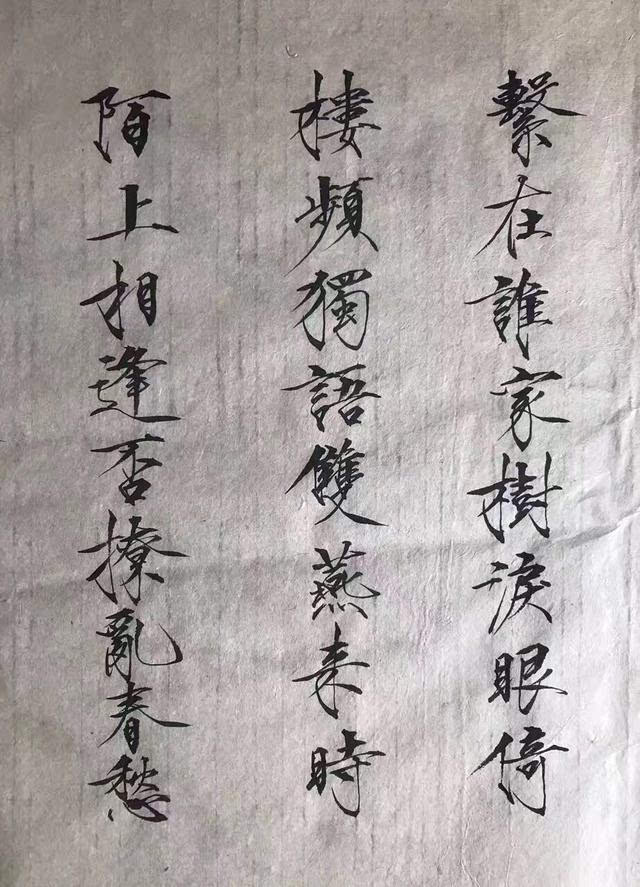 繫在誰家樹淚眼倚
樓頻獨語雙燕来時
陌上相逢否撩亂春愁